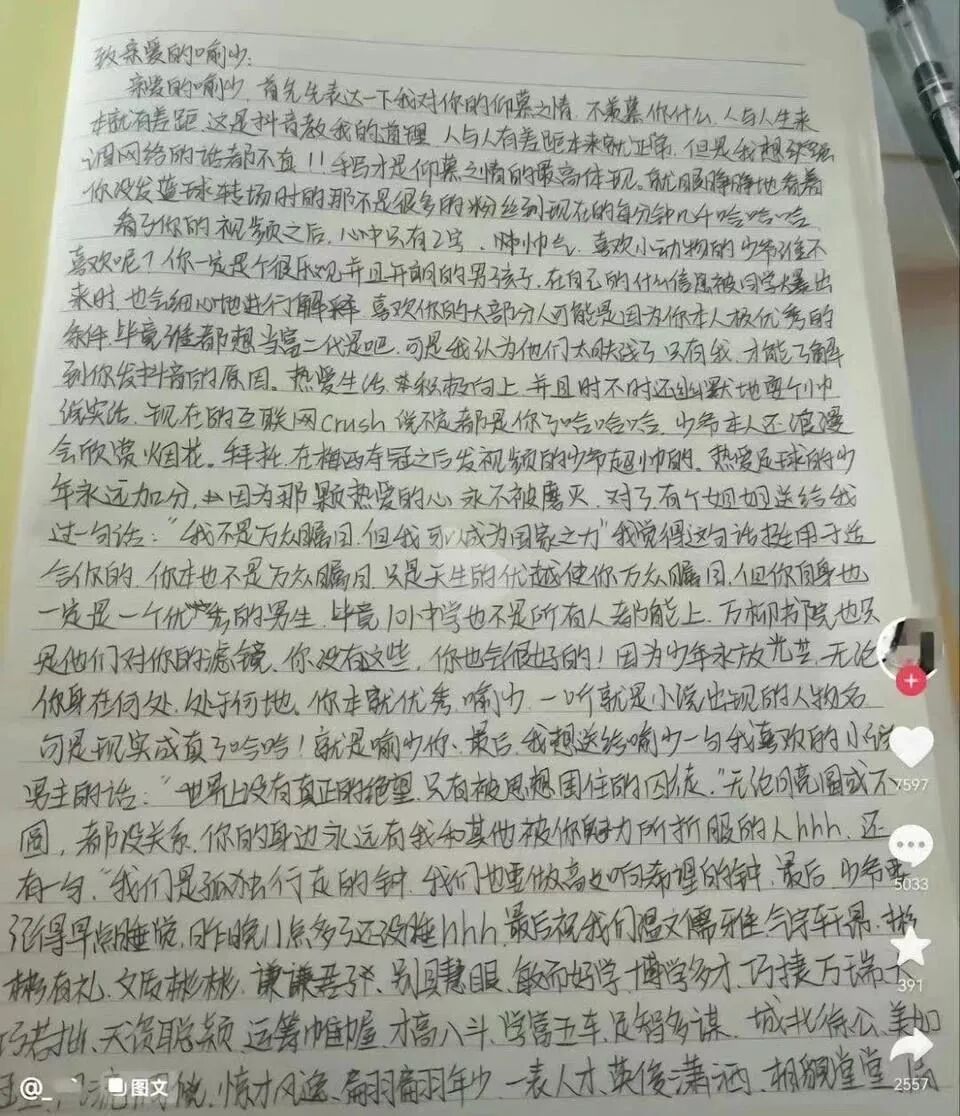 致亲爱的喻少:
亲爱的喻少,首先先表达一下我对你的仰慕之情,不羡慕你什么,人与人生来
本就有差距,这是抖音教我的道理,人与人有差距本来就正常,但是我想强调
网络的话都不真!!手写才是仰慕之情的最高体现。就眼睁睁地看着
你没发蓝球转场时的那不是很多的粉丝到现在的每分钟几千哈哈哈
看了你的视频之后,心中只有2字,帅帅气,喜欢小动物的少爷谁不
喜欢呢?你一定是个很乐观并且开朗的男孩子,在自己的什么信息被同学爆出
来时,也会细心地进行解释,喜欢你的大部分人可能是因为你本人极优秀的
条件,毕竟谁都想当富二代是吧,可是我认为他们太肤浅了,只有我,才能了解
到你发抖音的原因。热爱生活,积极向上,并且时不时还幽默地耍个帅
说实话,现在的互联网crush说不定都是你了哈哈哈,少爷本人还浪漫
会欣赏烟花。拜托,在梅西夺冠之后发视频的少爷超帅的。热爱足球的少
年永远加分,因为那颗热爱的心永不被磨灭,对了有个姐姐送给我
过一句话:“我不是万众瞩目,但我可以成为国家之力”我觉得这句话挺用于适
合你的,你本也不是万众瞩目,只是天生的优越使你万众瞩目,但你自身也
一定是一个优秀的男生,毕竟101中学也不是所有人都能上,万柳书院也只
是他们对你的滤镜,你没有这些,你也会很好的!因为少年永放光芒,无论
你身在何处,处于何地。你本就优秀,喻少,一听就是小说出现的人物名
可是现实成真了哈哈!就是喻少你、最后,我想送给喻少一句我喜欢的小说
男主的话:“世界上没有真正的绝望,只有被思想困住的囚徒,”无论月亮圆或不
圆,都没关系,你的身边永远有我和其他被你魅力所折服的人hhh,还
有一句,“我们是孤独行走的钟,我们也要做高处响希望的钟,最后,少爷要
记得早点睡觉,昨晚11点多了还没睡hhh,最后祝我们温文儒雅,气宇轩昂,彬
彬有礼,文质彬彬,谦谦君子,别具慧眼,敏而好学,博学多才,巧捷万端,大
巧若拙、天资聪颖,运筹帷幄,才高八斗,学富五车,足智多谋,城北徐公,美如
惊才风逸、翩翩年少,一表人才、英俊潇洒、相貌堂堂
7597
5033
391
2557
@_
图文